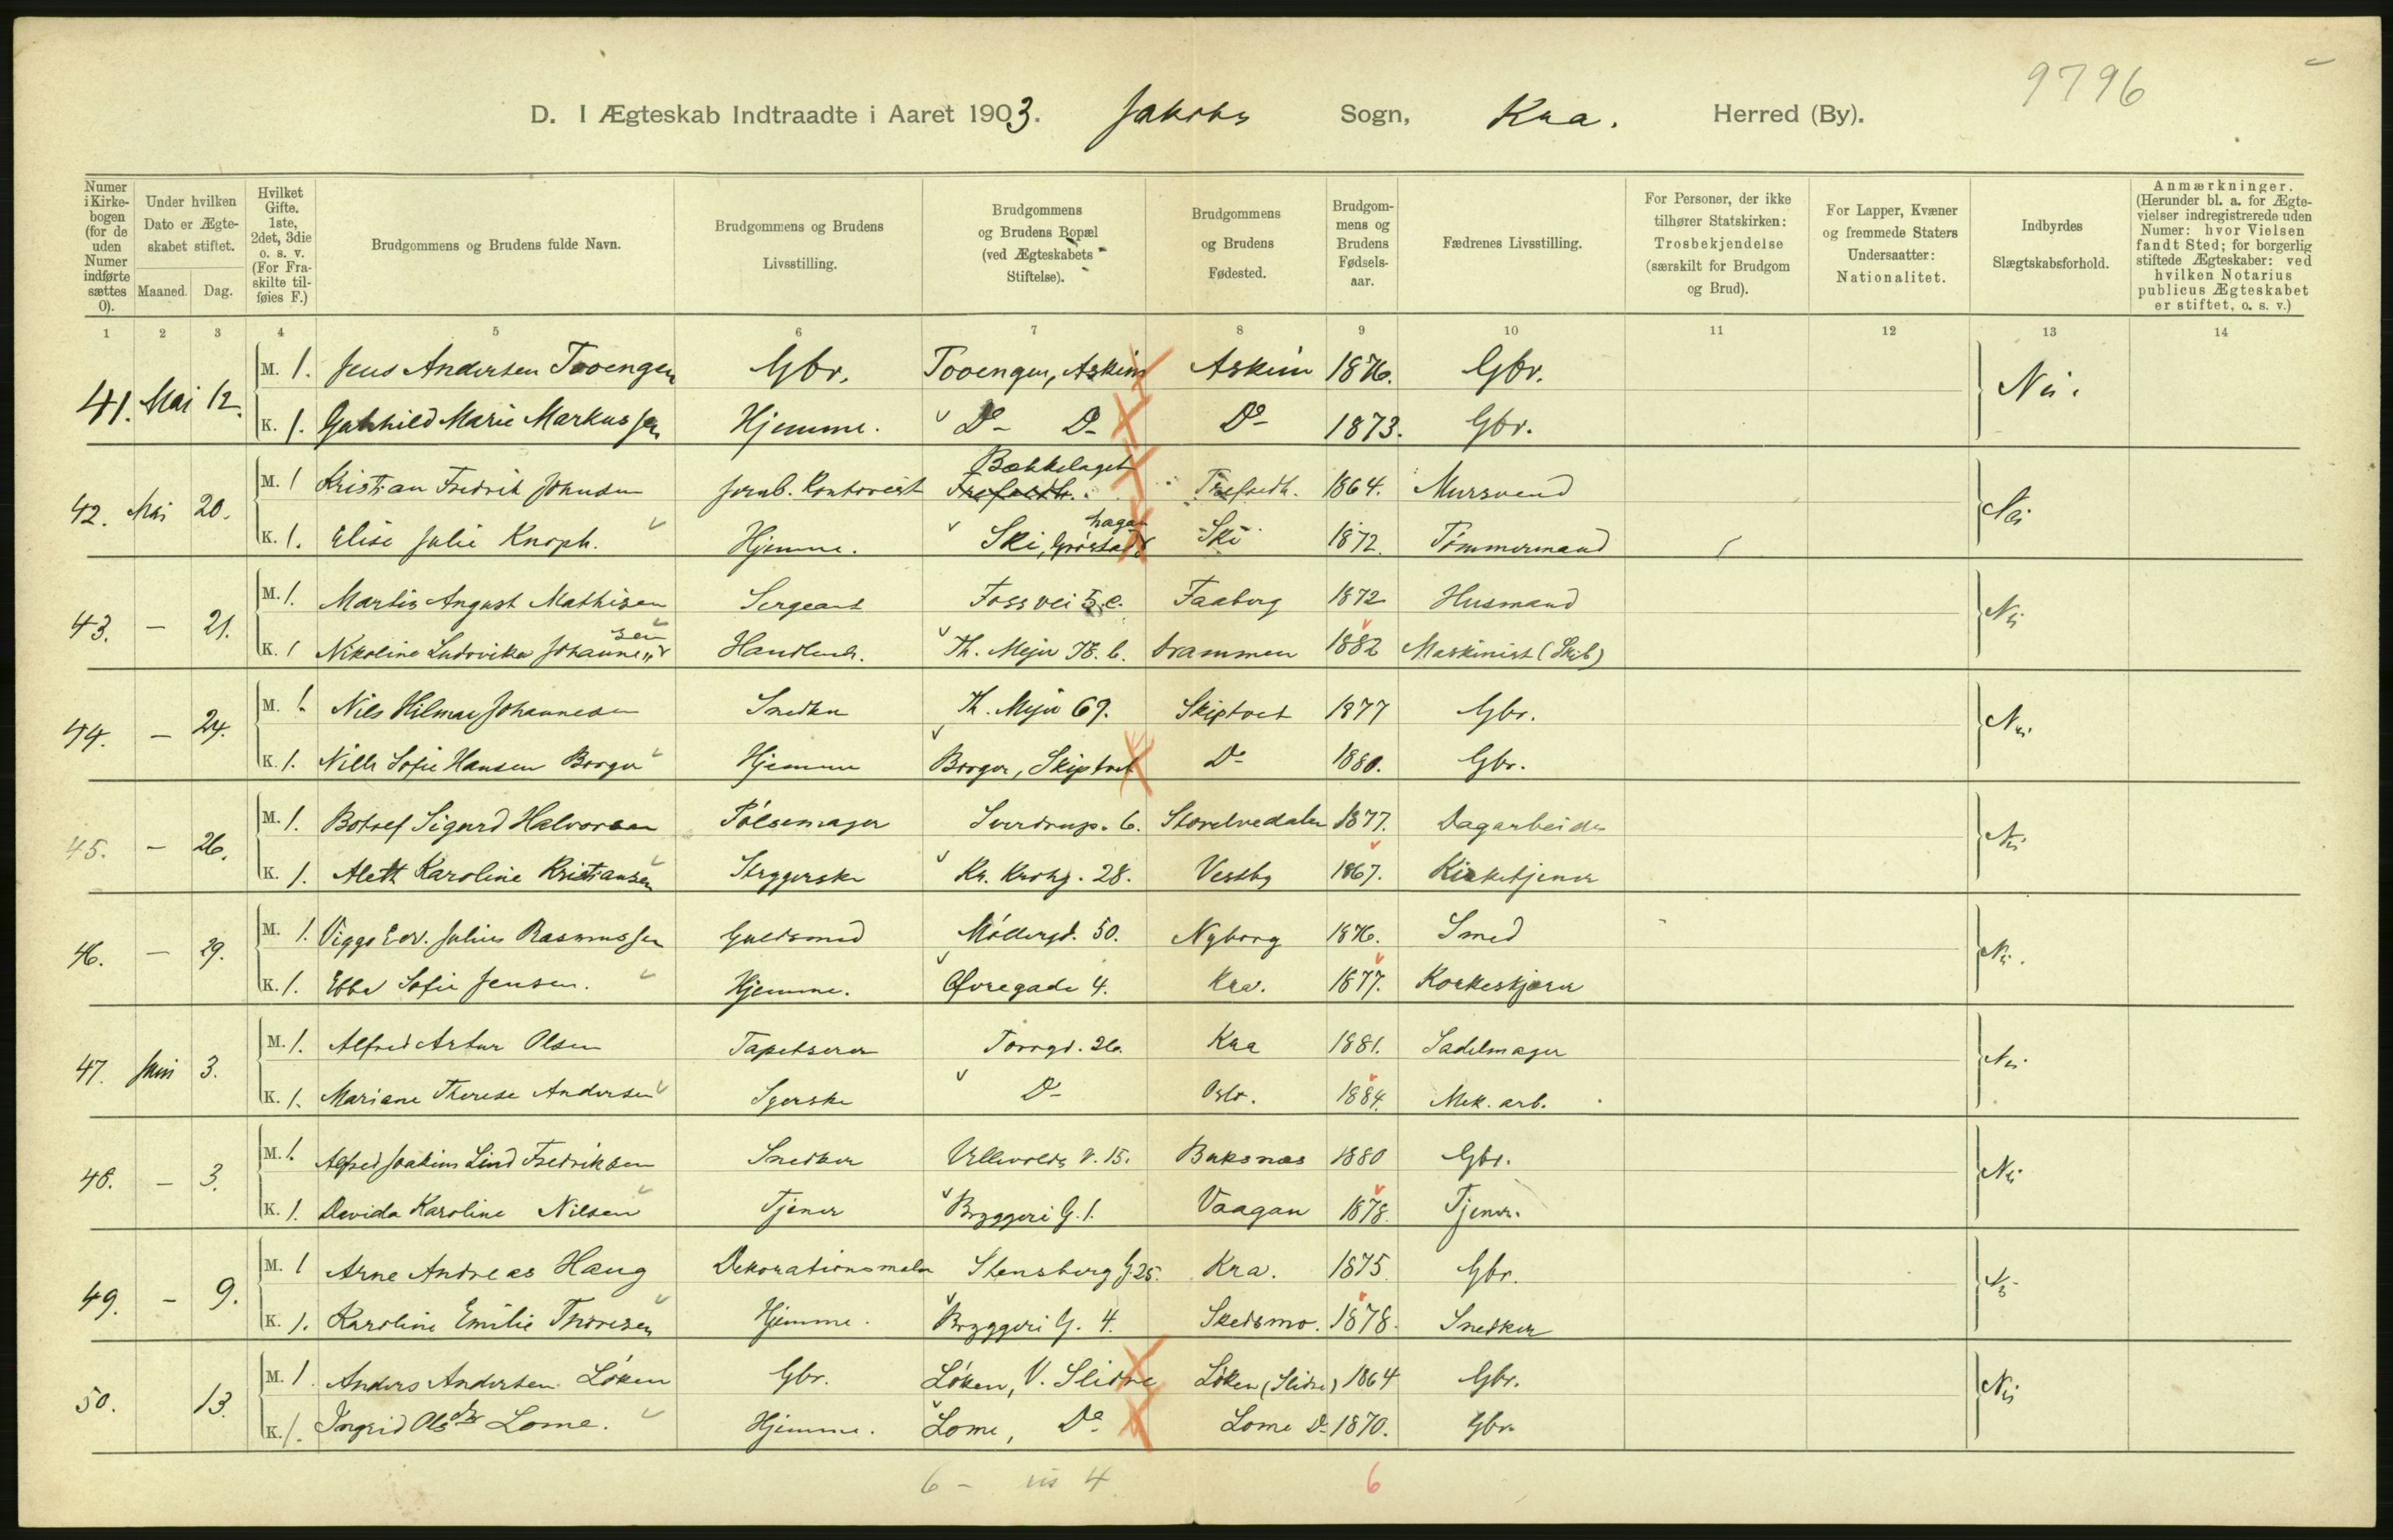 9796
D. I Ægteskab Indtraadte i Aaret 1903. Jakobs Sogn, Kra. Herred (By).
Numer i Kirke-bogen (for de uden Numer indførte sættes 0).
Under hvilken Dato er Ægte-skabet stiftet.
Maaned. Dag.
Hvilket Gifte. 1ste, 2det, 3die o. s. v. (For Fra-skilte til-føies F.)
Brudgommens og Brudens fulde Navn.
Brudgommens og Brudens Livsstilling.
Brudgommens og Brudens Bopæl (ved Ægteskabets Stiftelse).
Brudgommens og Brudens Fødested.
Brudgom-mens og Brudens Fødsels-aar.
Fædrenes Livsstilling.
For Personer, der ikke tilhører Statskirken: Trosbekjendelse (særskilt for Brudgom og Brud).
For Lapper, Kvæner og fremmede Staters Undersaatter: Nationalitet.
Indbyrdes Slægtskabsforhold.
Anmærkninger. (Herunder bl. a. for Ægte-vielser indregistrerede uden Numer: hvor Vielsen fandt Sted; for borgerlig stiftede Ægteskaber: ved hvilken Notarius publicus Ægteskabet er stiftet, o. s. v.)
1 2 3 4 5 6 7 8 9 10 11 12 13 14
41. Mai 12. M. 1. Jens Andersen Tovengen Gbr. Tovengen, Askim Askim 1876. Gbr. Nei.
K. 1. Gunhild Marie Markussen Hjemme. Do Do Do 1873. Gbr.
42. Mai 20. M. 1 Kristian Fredrik Johnsen Jernb. Kontorist Bækkelaget Trefoldh. Trefoldh. 1864. Mursvend Nei
K. 1. Elise Julie Knoph. Hjemme. Ski, Grøstad hagen Ski 1872. Tømmermand
43. – 21. M. 1. Martin August Mathisen Sergeant Fossvei 5 c. Faaberg 1872 Husmand Nei
K. 1 Nikoline Ludovika Johannessen Handlende. Th. Meyer 78. b. Drammen 1882 Maskinist (Skib)
44. – 24. M. 1. Nils Hilmar Johannesen Snedker Th. Meyer 69. Skiptvet 1877 Gbr. Nei
K. 1. Nille Sofie Hansen Borger Hjemme Borger, Skiptvet Do 1880. Gbr.
45. – 26. M. 1. Botolf Sigurd Halvorsen Pølsemager Sverdrup. 6. Storelvedalen 1877. Dagarbeider Nei
K. 1. Alett Karoline Kristiansen Strygerske Kr. Krohg. 28. Vestby 1867. Kirketjener
46. – 29. M. 1. Viggo Edv. Julius Rasmussen Guldsmed Møllergd. 50. Nyborg 1876. Smed Nei.
K. 1. Ebba Sofie Jensen. Hjemme. Øvregade 4. Kra. 1877. Korkeskjærer
47. Juni 3. M. 1. Alfred Artur Olsen Tapetserer Torvgd. 26. Kra 1881. Sadelmager Nei
K. 1. Mariane Therese Andersen Syerske Do Oslo. 1884. Mek. arb.
48. – 3. M. 1. Alfred Joakim Lind Fredriksen Snedker Ullevolds v. 15. Buksnes 1880 Gbr. Nei
K. 1. Davida Karoline Nilsen Tjener Bryggeri G. 1. Vaagan 1878. Tjener.
49. – 9. M. 1 Arne Andreas Haug Dekorationsmaler Stensberg G. 25. Kra. 1875. Gbr. Nei
K. 1. Karoline Emilie Thoresen Hjemme. Bryggeri G. 4. Skedsmo. 1878. Snedker
50. 13. M. 1. Anders Andersen Løken Gbr. Løken, V. Slidre Løken (Slidre) 1864 Gbr. Nei
K. 1. Ingrid Olsdtr Lome. Hjemme. Lome, Do Lome Do 1870. Gbr.
6 – 4 6